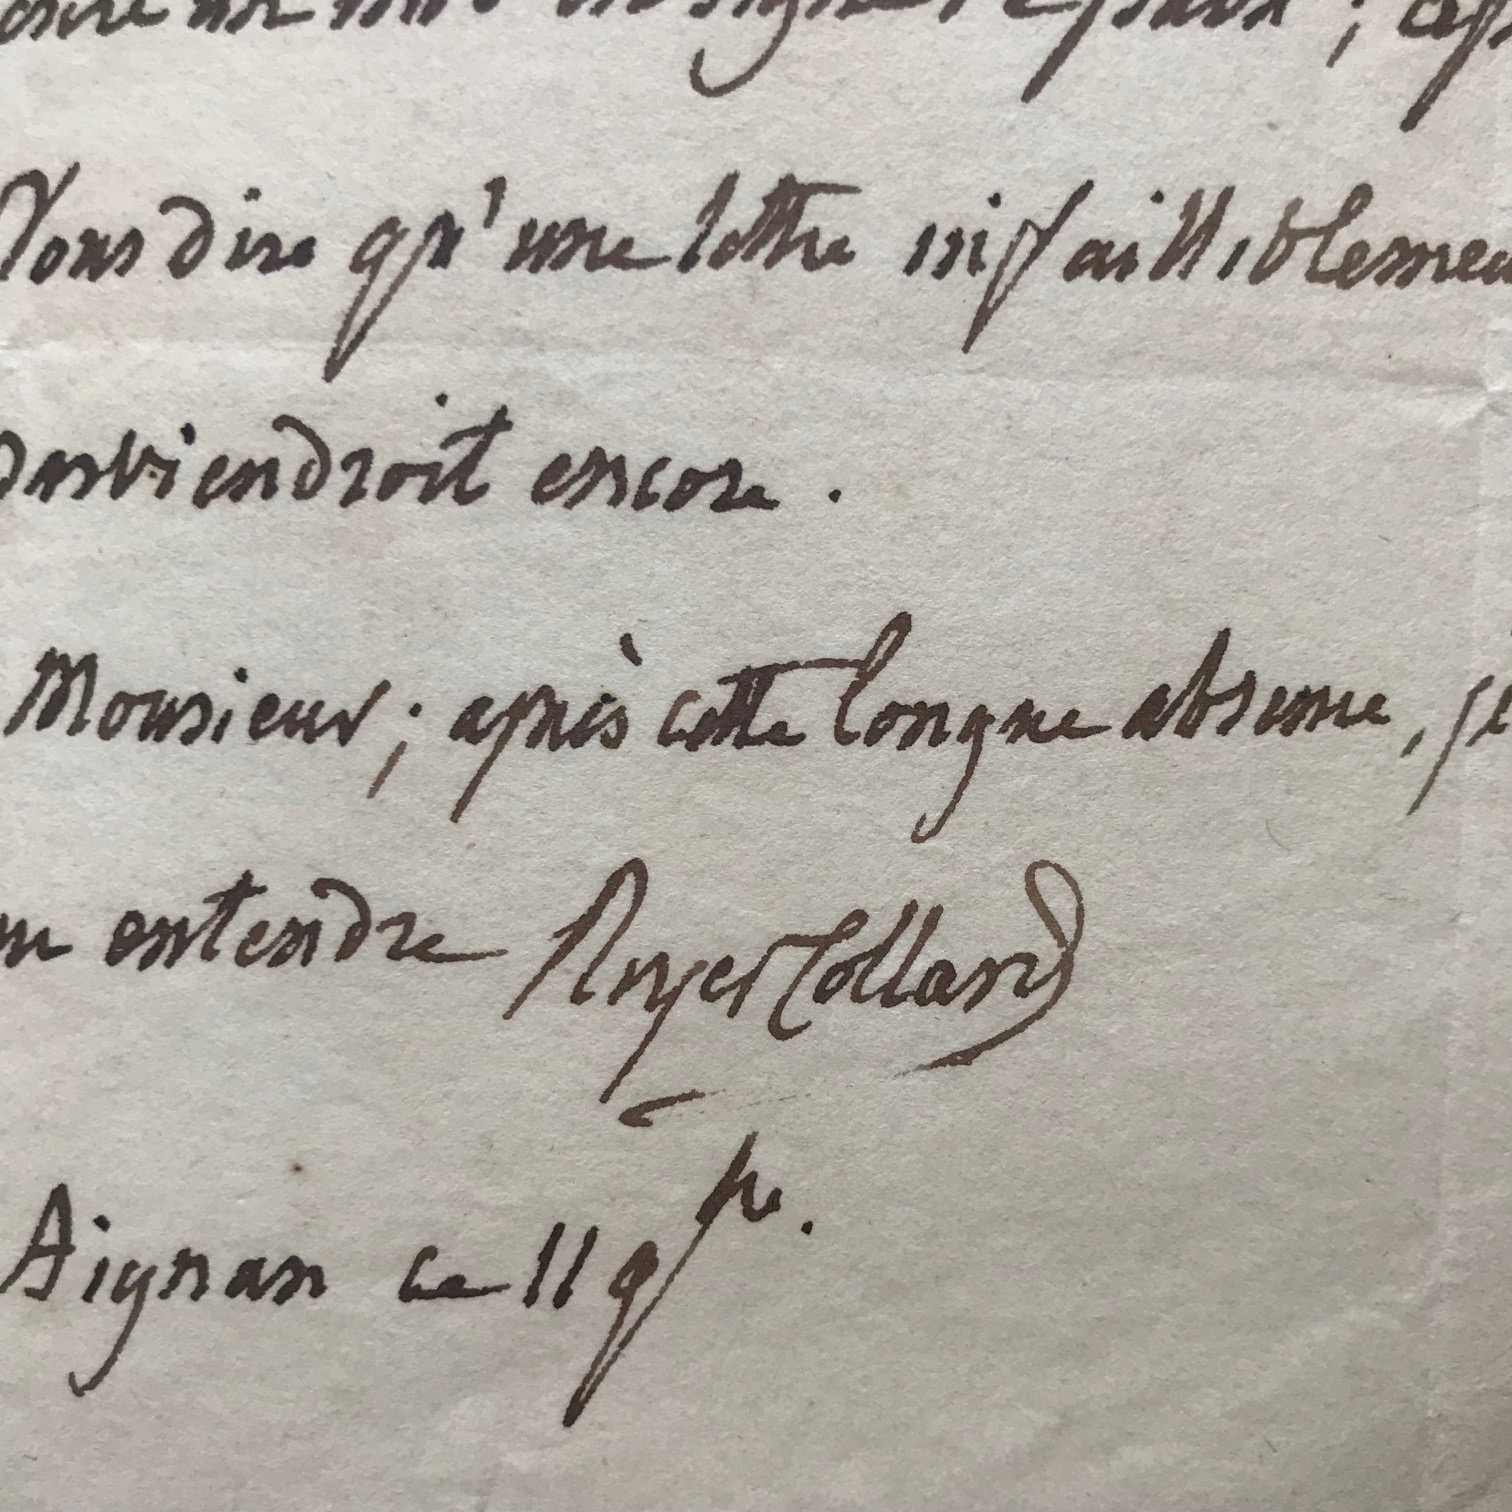 Vous dire qu'une lettre infailliblemen
parviendroit encore.
Monsieur ; après cette longue absence, je
entendre Royer Collard
Aignan ce 11 9bre.